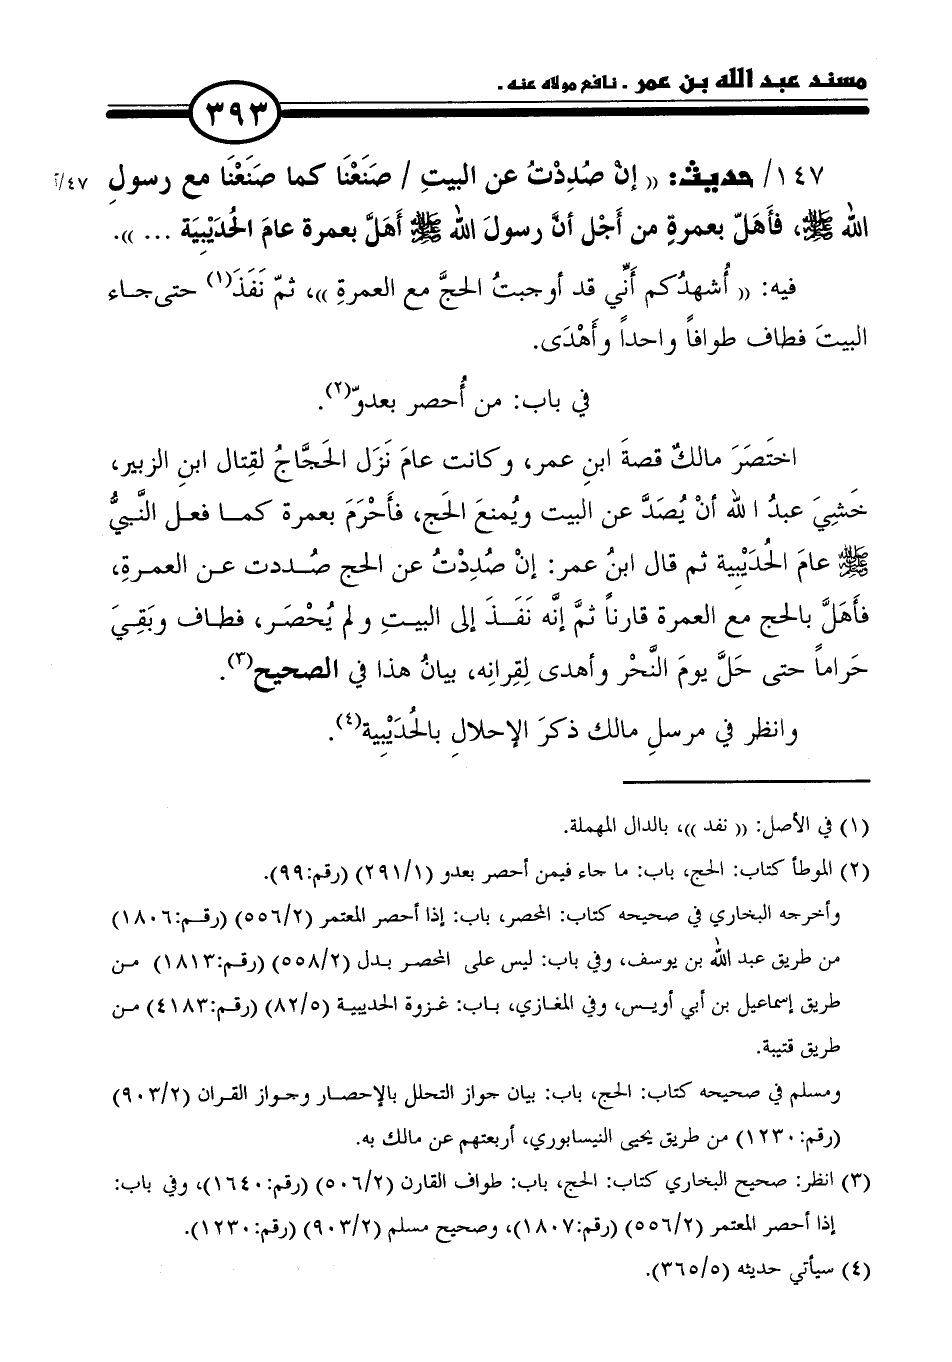 مسند عبد الله بن عمر . نافع مولاه عنه .
٣٩٣
١٤٧/ حديث: (( إنْ صُدِدْتُ عن البيتِ / صَنَعْنَا كما صَنَعْنَا مع رسولِ
٤٧/أ
الله ﷺ، فأَهَلّ بعمرةٍ من أَجْل أنَّ رسولَ الله ﷺ أَهَلَّ بعمرة عامَ الحُدَيْبِيَة ... )).
فيه: (( أُشهدُكم أَنِّي قد أوجبتُ الحجَّ مع العمرةِ ))، ثمّ نَفَذَ(١) حتى جاء
البيتَ فطاف طوافاً واحداً وأَهْدَى.
في باب: من أُحصر بعدوّ(٢).
اختَصَرَ مالكٌ قصةَ ابنِ عمر، وكانت عامَ نَزَل الحَجَّاجُ لقِتال ابنِ الزبير،
خَشِيَ عبدُ الله أنْ يُصَدَّ عن البيت ويُمنعَ الحج، فأَحْرَمَ بعمرة كما فعل النَّبيُّ
ﷺ عامَ الحُدَيْبِية ثم قال ابنُ عمر: إنْ صُدِدْتُ عن الحج صُددت عن العمرةِ،
فأَهَلَّ بالحج مع العمرة قارناً ثمَّ إنَّه نَفَذَ إلى البيتِ ولم يُحْصَر، فطاف وبَقِيَ
حَراماً حتى حَلَّ يومَ النَّحْر وأهدى لِقِرانِه، بيانُ هذا في الصحيح(٣).
وانظر في مرسلِ مالك ذكرَ الإحلالِ بالحُدَيْبِية(٤).
(١) في الأصل: (( نفد ))، بالدال المهملة.
(٢) الموطأ كتاب: الحج، باب: ما جاء فيمن أحصر بعدو (٢٩١/١) (رقم:٩٩).
وأخرجه البخاري في صحيحه كتاب: المحصر، باب: إذا أحصر المعتمر (٥٥٦/٢) (رقم:١٨٠٦)
من طريق عبد الله بن يوسف، وفي باب: ليس على المحصر بدل (٥٥٨/٢) (رقم:١٨١٣) من
طريق إسماعيل بن أبي أويس، وفي المغازي، باب: غزوة الحديبية (٨٢/٥) (رقم:٤١٨٣) من
طريق قتيبة.
ومسلم في صحيحه كتاب: الحج، باب: بيان جواز التحلل بالإحصار وجواز القران (٩٠٣/٢)
(رقم:١٢٣٠) من طريق يحيى النيسابوري، أربعتهم عن مالك به.
(٣) انظر: صحيح البخاري كتاب: الحج، باب: طواف القارن (٥٠٦/٢) (رقم:١٦٤٠)، وفي باب:
إذا أحصر المعتمر (٥٥٦/٢) (رقم:١٨٠٧)، وصحيح مسلم (٩٠٣/٢) (رقم:١٢٣٠).
(٤) سيأتي حديثه (٣٦٥/٥).